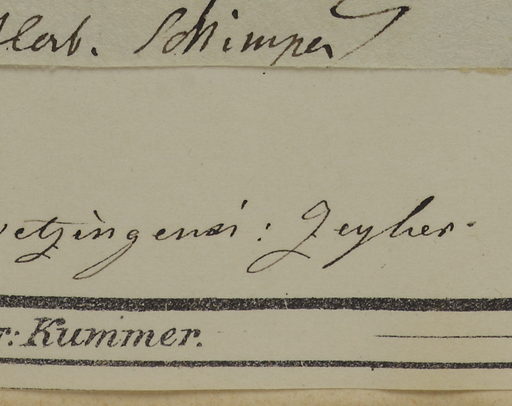 Herb. Schimper
wetzingensi: Zeyher.
r: Kummer.